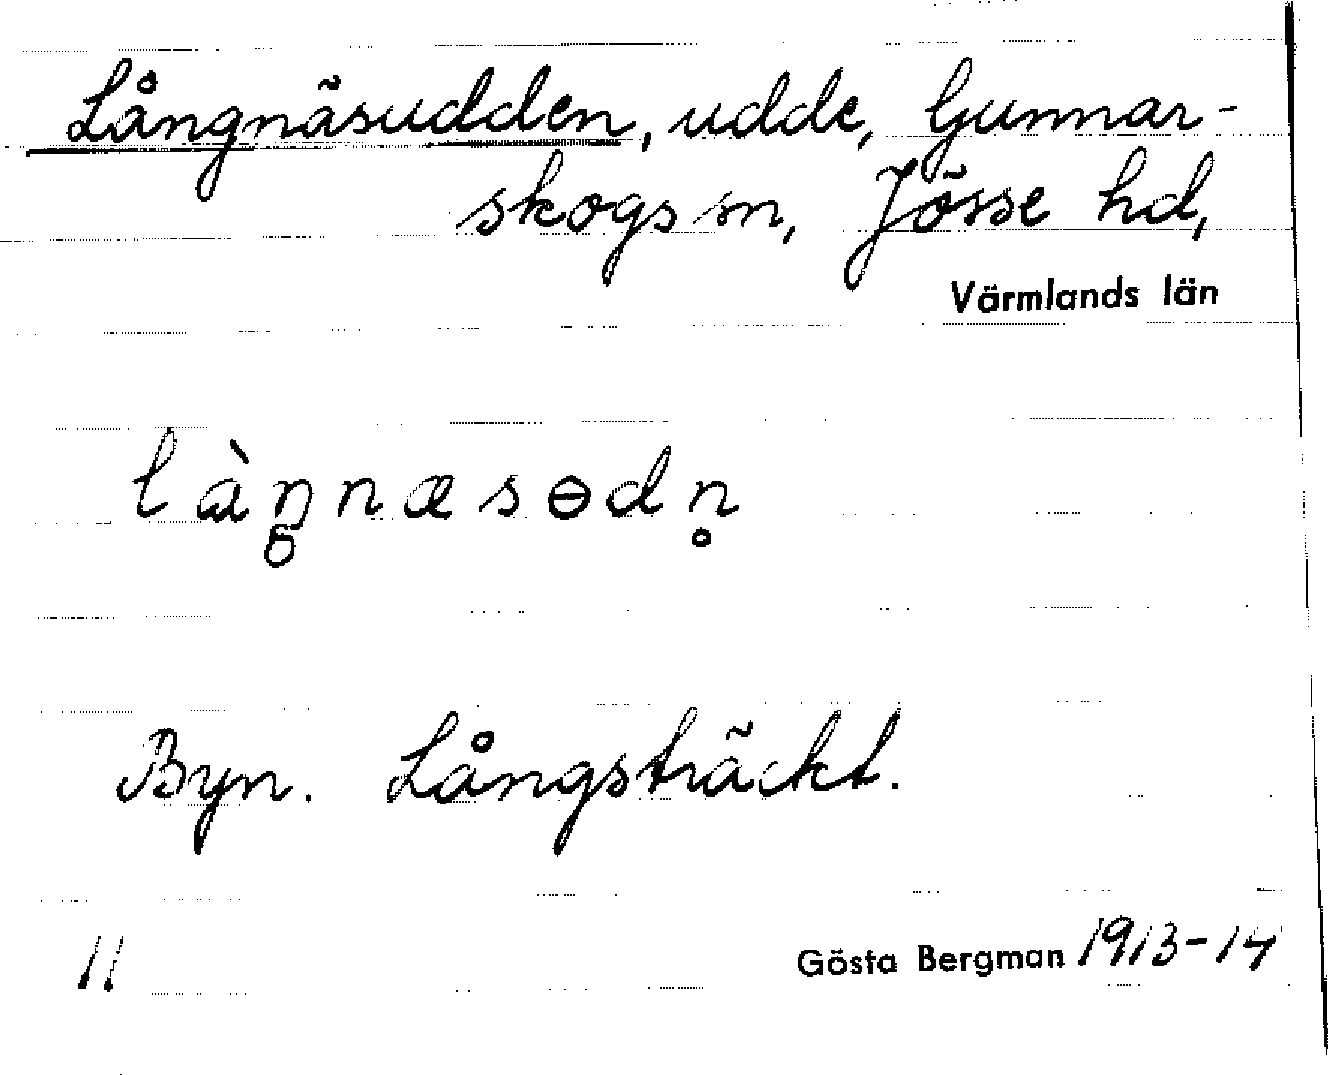 Långnäsudden, udde, Gunnar-
skogs sn, Jösse hd,
Värmlands län
làŋ̥næsɵdn̥
Byn. Långsträckt.
11
Gösta Bergman 1913-14